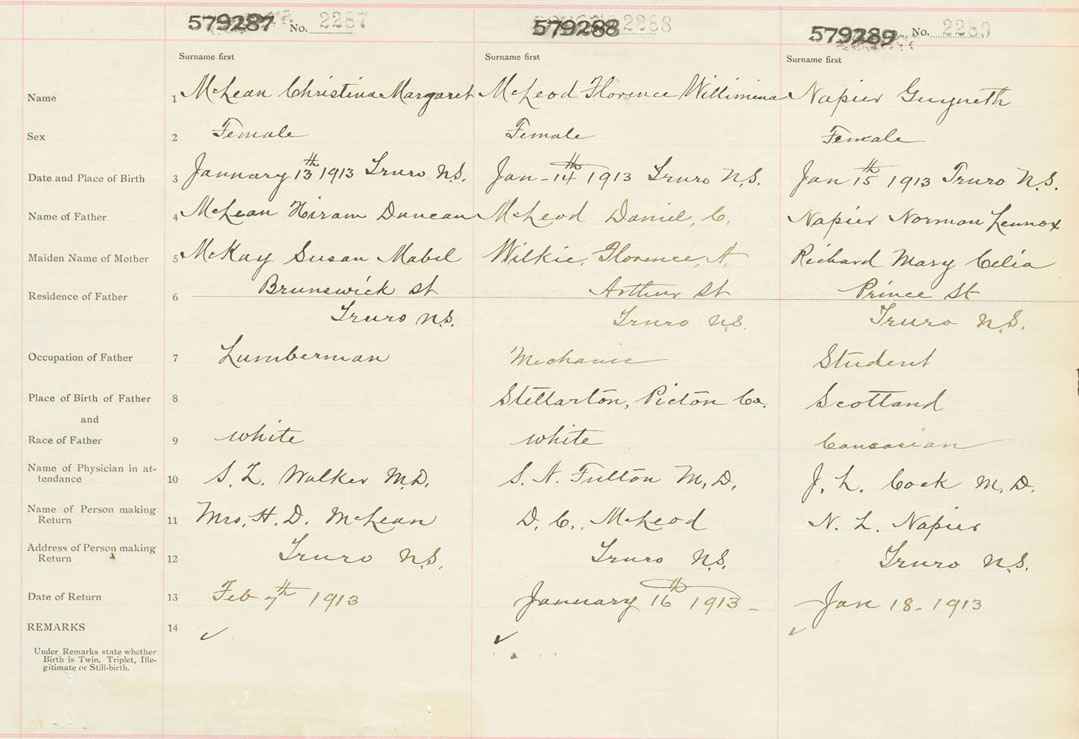 579287 No. 2287 579288 2288 579289 No. 2289
Surname first Surname first Surname first
Name 1 McLean Christina Margaret McLeod Florence Willimina Napier Guyneth
Sex 2 Female Female Female
Date and Place of Birth 3 January 13th 1913 Truro N.S. Jan - 14th 1913 Truro N.S. Jan 15th 1913 Truro N.S.
Name of Father 4 McLean Hiram Duncan McLeod Daniel, C. Napier Norman Lennox
Maiden Name of Mother 5 McKay Susan Mabel Wilkie, Florence, A. Richard Mary Celia
Residence of Father 6 Brunswick St Arthur St Prince St
Truro N.S. Truro N.S. Truro N.S.
Occupation of Father 7 Lumberman Mechanic Student
Place of Birth of Father 8 Stellarton, Picton Co. Scotland
and
Race of Father 9 white white Caucasian
Name of Physician in at-
tendance 10 S. L. Walker M.D. S. N. Fulton M, D, J. L. Cock M, D.
Name of Person making
Return 11 Mrs, H. D. McLean D. C, McLeod N. L. Napier
Address of Person making
Return 12 Truro N.S. Truro N.S. Truro N.S.
Date of Return 13 Feb 7th 1913 January 16th 1913 - Jan 18 - 1913
REMARKS 14 ✓ ✓ ✓
Under Remarks state whether
Birth is Twin, Triplet, Ille-
gitimate or Still-birth.